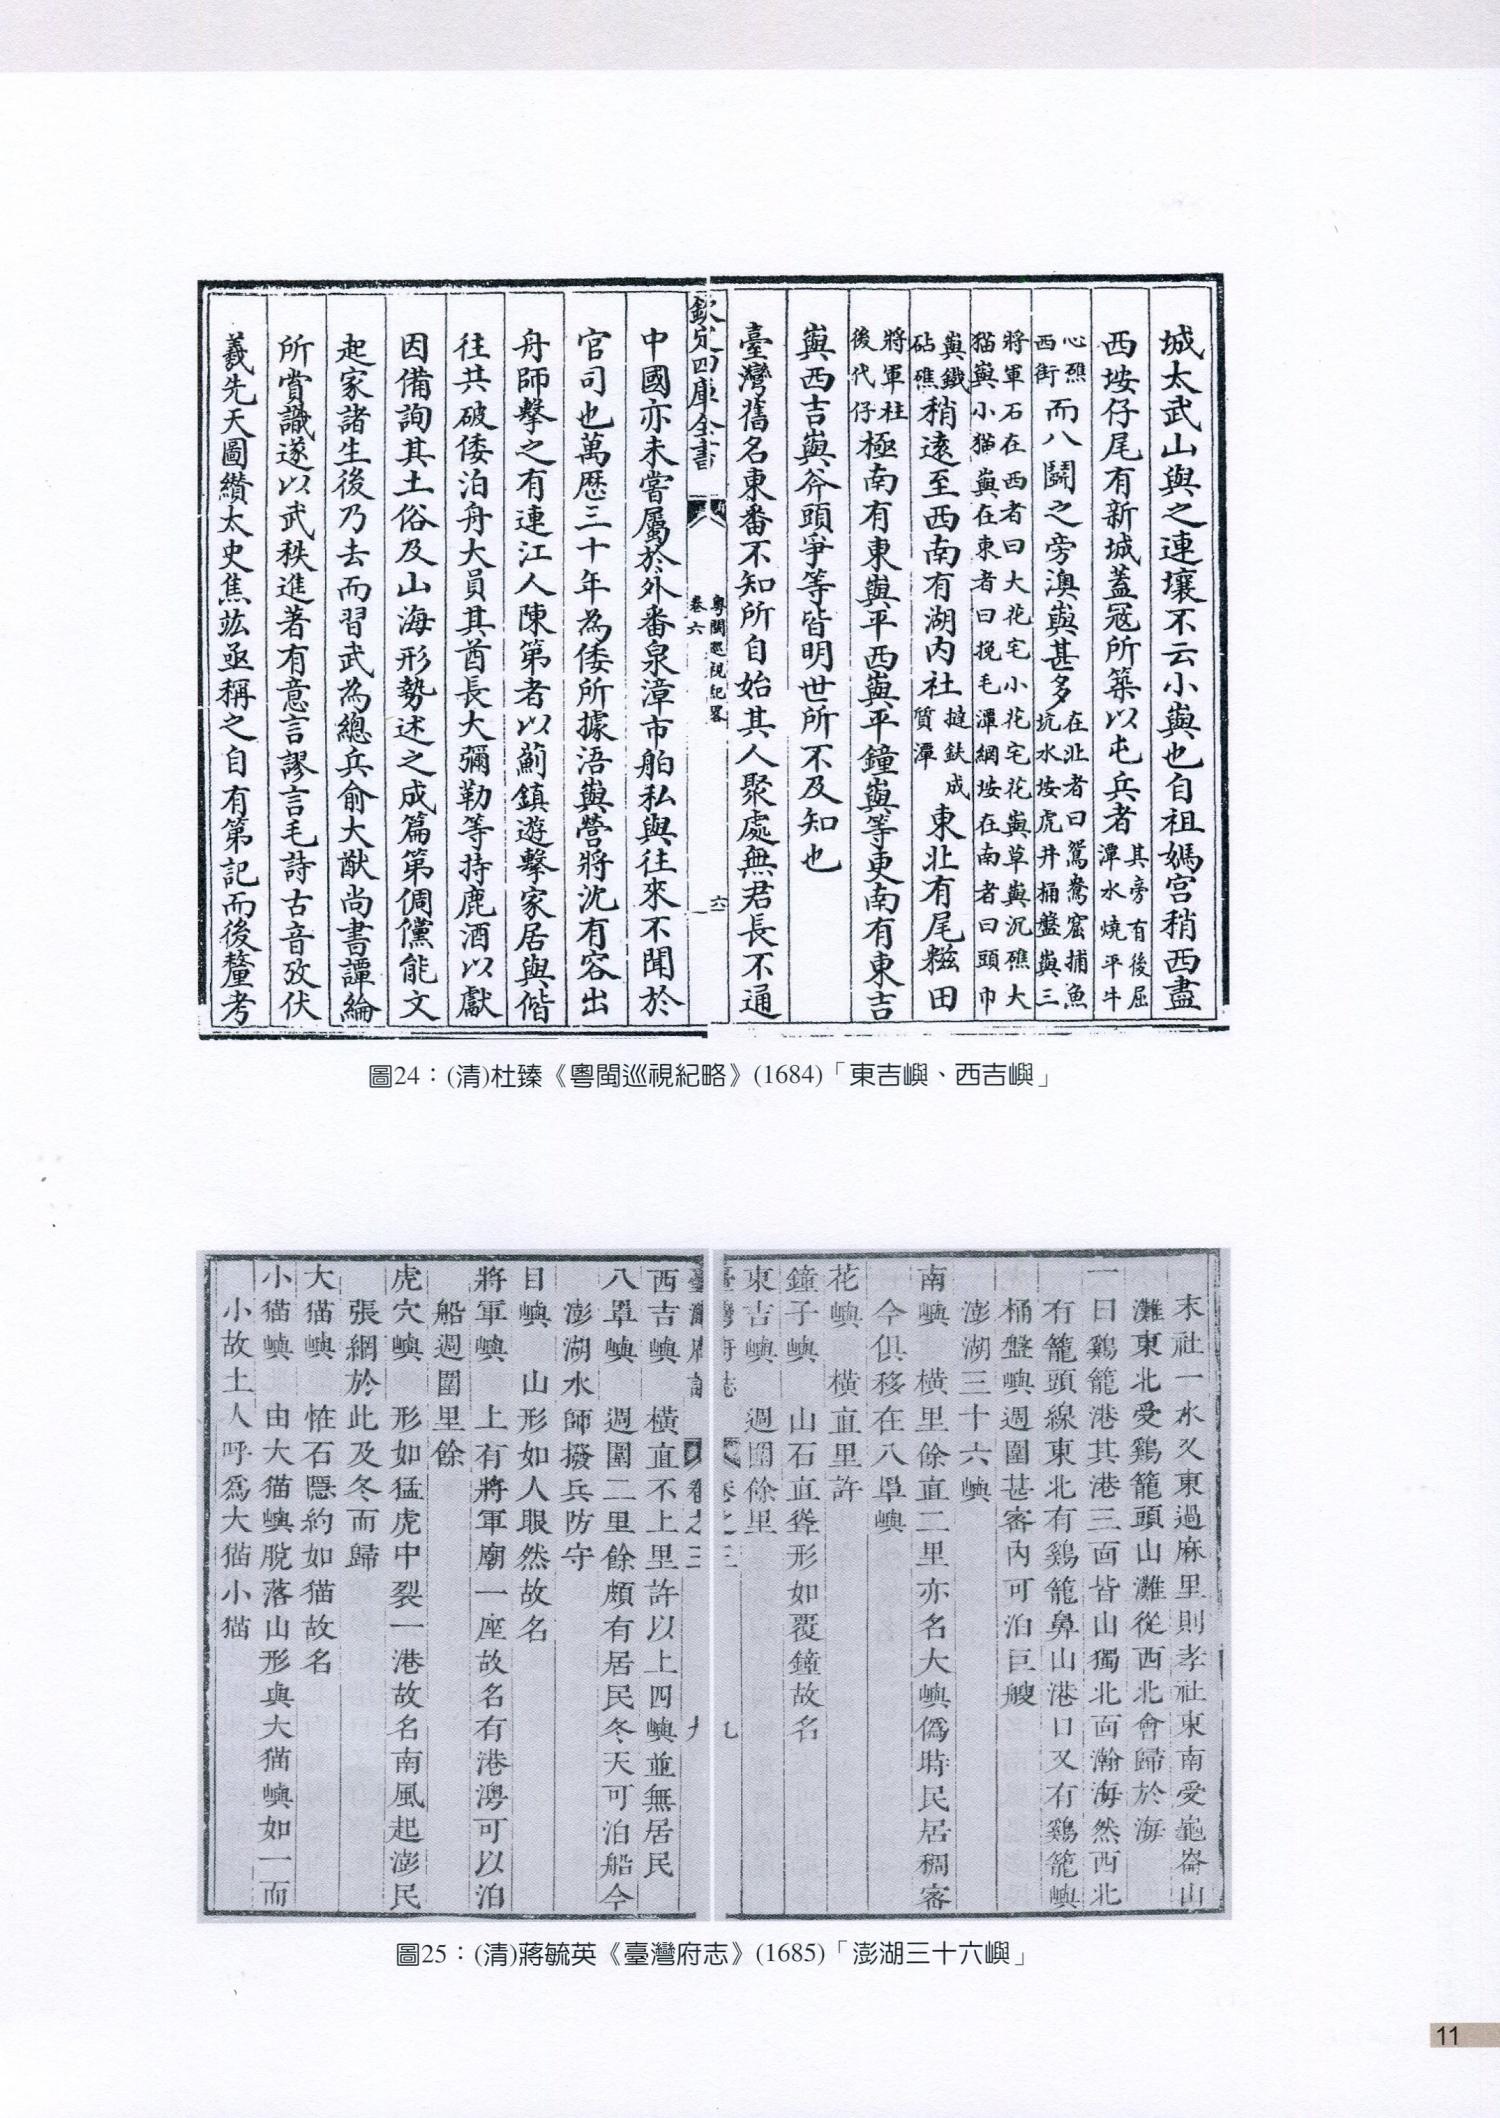 城太武山與之連壤不云小嶼也自祖媽宮稍西盡
西垵仔尾有新城蓋冦所築以屯兵者其旁有後屈潭水燒平牛
心礁西街而八鬬之旁澳嶼甚多在北者曰鴛鴦窟捕魚坑水垵虎井桶盤嶼三
將軍石在西者曰大花宅小花宅花嶼草嶼沉礁大猫嶼小猫嶼在東者曰挽毛潭網垵在南者曰頭巾
嶼鐵砧礁稍遠至西南有湖內社撻鈇成質潭東北有尾糍田
將軍社後代仔極南有東嶼平西嶼平鐘嶼等更南有東吉
嶼西吉嶼斧頭爭等皆明世所不及知也
臺灣舊名東番不知所自始其人聚處無君長不通
欽定四庫全書
粵閩廵視紀畧
卷六
六
中國亦未嘗屬於外番泉漳市舶私與往來不聞於
官司也萬歴三十年為倭所據浯嶼營將沈有容出
舟師擊之有連江人陳第者以薊鎮遊擊家居與偕
往其破倭泊舟大員其酋長大彌勒等持鹿酒以獻
因備詢其土俗及山海形勢述之成篇第倜儻能文
起家諸生後乃去而習武為總兵俞大猷尚書譚綸
所賞識遂以武秩進著有意言謬言毛詩古音攷伏
羲先天圖纘太史焦竑亟稱之自有第記而後釐考
圖24：(清)杜臻《粵閩巡視紀略》(1684)「東吉嶼、西吉嶼」
末社一水又東過麻里則孝社東南受龜崙山
灘東北受鷄籠頭山灘從西北會歸於海
一曰鷄籠港其港三面皆山獨北面瀚海然西北
有籠頭線東北有鷄籠鼻山港口又有鷄籠嶼
桶盤嶼週圍甚濶內可泊巨艘
澎湖三十六嶼
南嶼　橫里餘直二里亦名大嶼偽時民居稠密
今俱移在八罩嶼
花嶼　橫直里許
鐘子嶼　山石直聳形如覆鐘故名
東吉嶼　週圍餘里
臺灣府誌　卷之三　九
西吉嶼　橫直不上里許以上四嶼並無居民
八罩嶼　週圍二里餘頗有居民冬天可泊船今
澎湖水師撥兵防守
目嶼　山形如人眼然故名
將軍嶼　上有將軍廟一座故名有港灣可以泊
船週圍里餘
虎穴嶼　形如猛虎中裂一港故名南風起澎民
張網於此及冬而歸
大猫嶼　恠石隱約如猫故名
小猫嶼　由大猫嶼脫落山形與大猫嶼如一而
小故土人呼爲大猫小猫
圖25：(清)蔣毓英《臺灣府志》(1685)「澎湖三十六嶼」
11